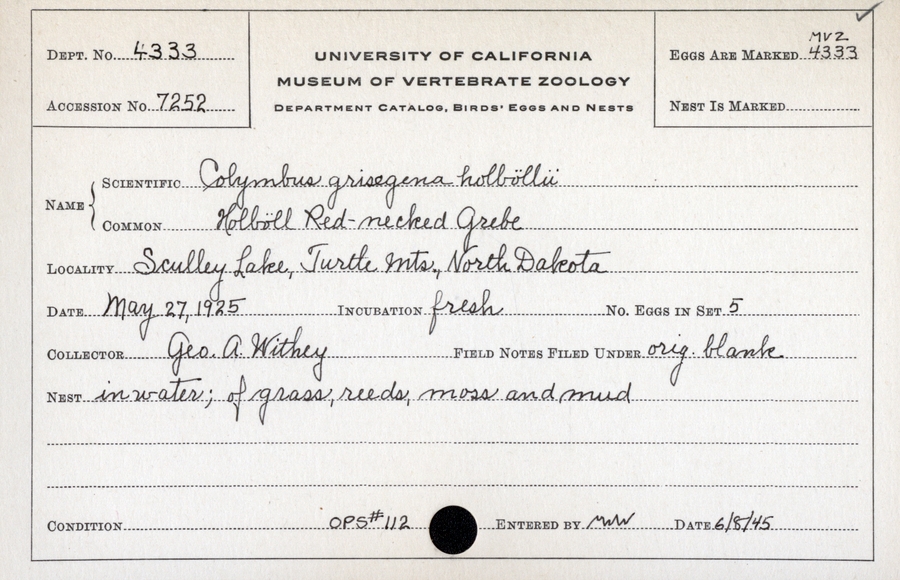 DEPT. No. 4333
ACCESSION No. 7252
UNIVERSITY OF CALIFORNIA
MUSEUM OF VERTEBRATE ZOOLOGY
DEPARTMENT CATALOG, BIRDS' EGGS AND NESTS
MVZ
EGGS ARE MARKED 4333
NEST IS MARKED
NAME
SCIENTIFIC Colymbus grisegena holböllii
COMMON Holböll Red-necked Grebe
LOCALITY Sculley Lake, Turtle Mts., North Dakota
DATE May 27, 1925 INCUBATION fresh No. EGGS IN SET 5
COLLECTOR Geo. A. Withey FIELD NOTES FILED UNDER orig. blank
NEST in water; of grass, reeds, moss and mud
CONDITION OPS#112 ENTERED BY DATE 6/8/45